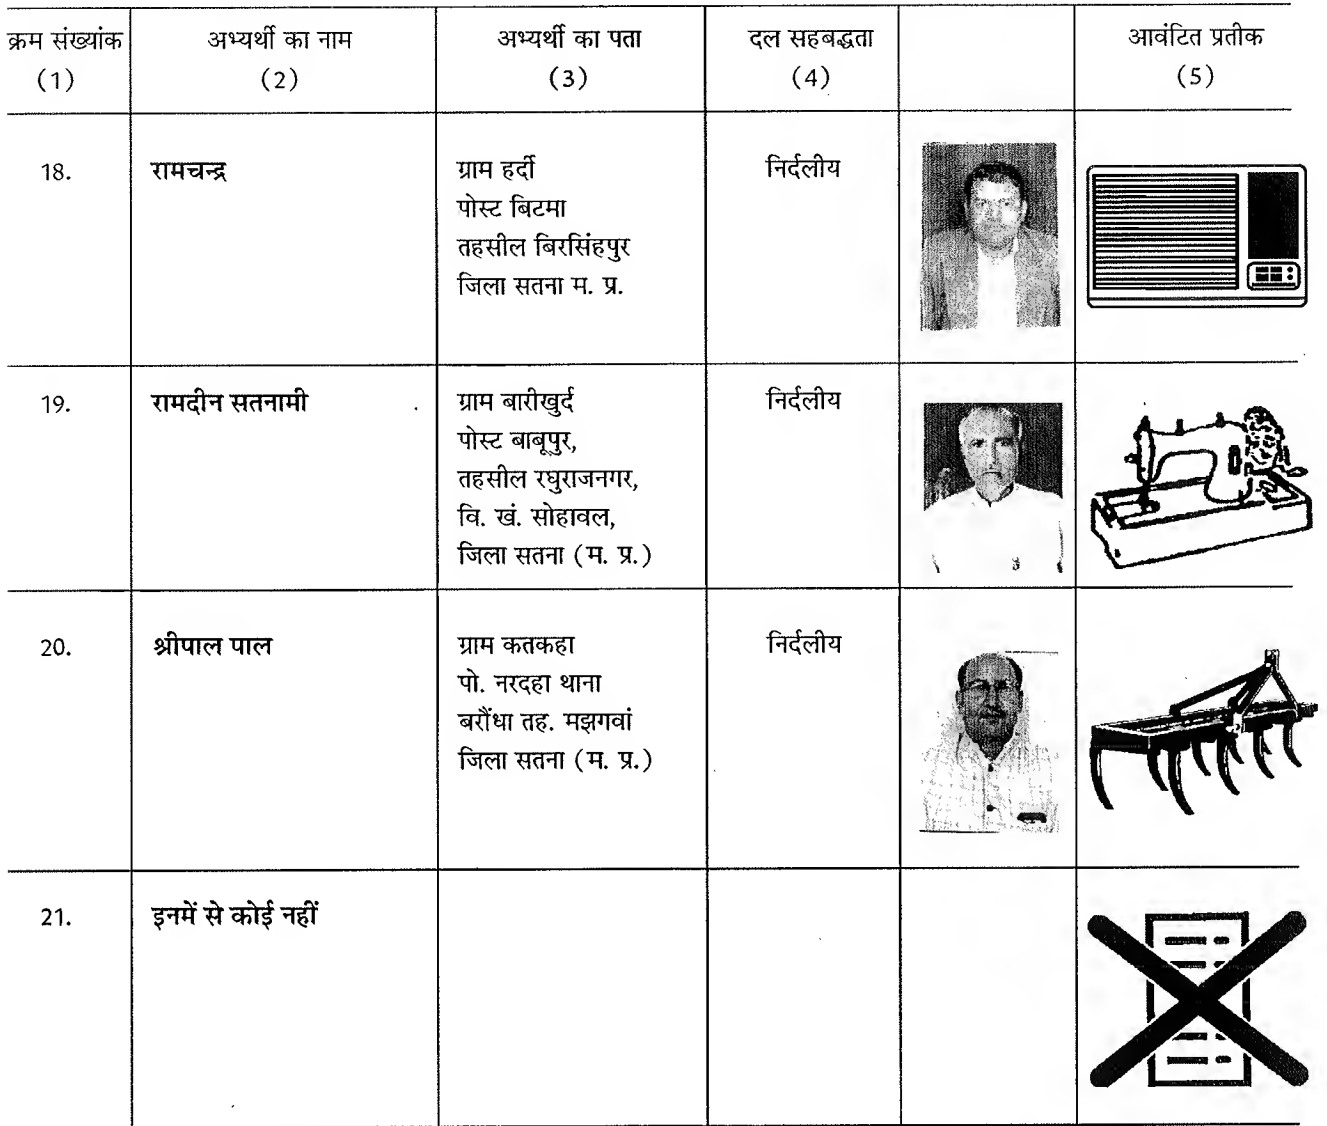 क्रम संख्यांक अभ्यर्थी का नाम अभ्यर्थी का पता दल सहबद्धता आवंटित प्रतीक
(1) (2) (3) (4) (5)
18. रामचन्द्र ग्राम हर्दी निर्दलीय
पोस्ट बिटमा
तहसील बिरसिंहपुर
जिला सतना म. प्र.
19. रामदीन सतनामी ग्राम बारीखुर्द निर्दलीय
पोस्ट बाबूपुर,
तहसील रघुराजनगर,
वि. खं. सोहावल,
जिला सतना (म. प्र.)
20. श्रीपाल पाल ग्राम कतकहा निर्दलीय
पो. नरदहा थाना
बरौंधा तह. मझगवां
जिला सतना (म. प्र.)
21. इनमें से कोई नहीं